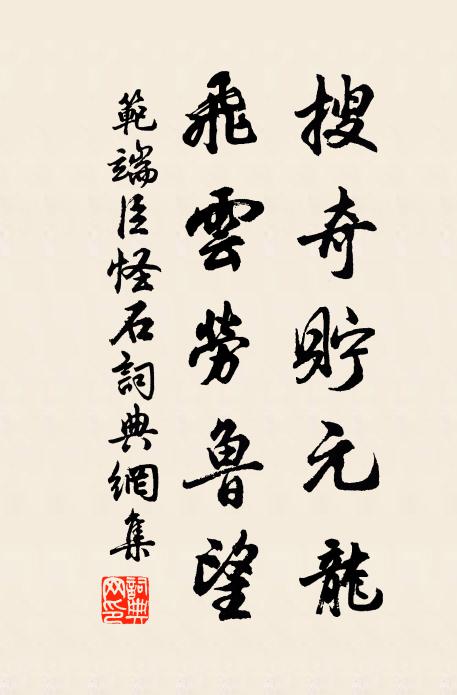 搜奇貯元龍
飛雲勞魯望
範端臣怪石詞典網集
詞典網印